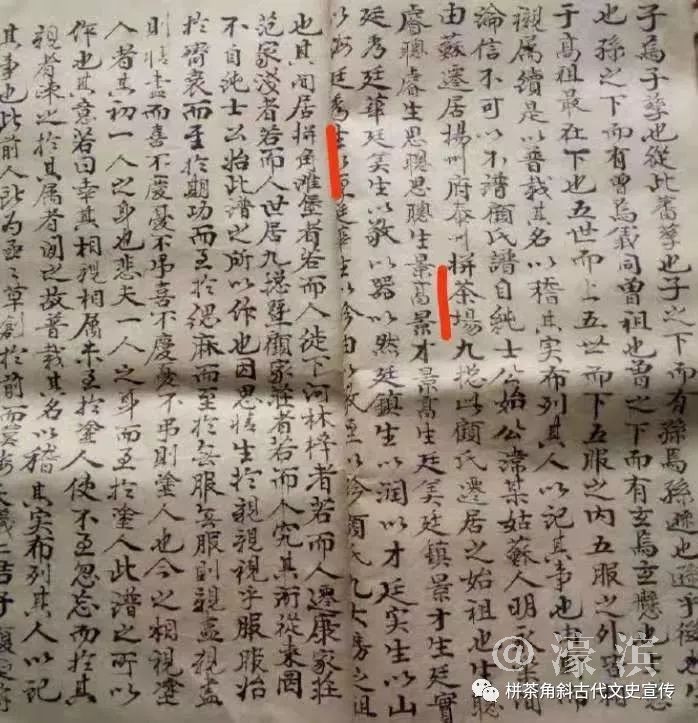 子焉子孳也從此蕃孳也子之下而有孫焉孫遜也遜乎後
也孫之下而有曾焉義同曾祖也曾之下而有玄焉玄懸也
于高祖最在下也五世而上五世而下五服之内五服之外
親属續是以普载其名以稽其实布列其人以記其事也
淪信不可以不譜顧氏譜自純士公始公諱某姑蘇人明永
由蘇遷居揚州府泰州栟茶場九總此顧氏遷居之始祖也生聰
睿聰睿生思聰思聰生景高景才景高生廷美廷鎮景才生廷實
廷秀廷華廷美生以敬以器以然廷鎮生以潤以才廷实生以山
廷秀生以 顧氏九大房之祖
也其间居栟角 堡者若而人徙下河林梓者若而人遷康家莊
范家淺者若而人世居九總 顧家莊者若而人究其所從来因
不自純士公始此譜之所以作也因思情生於親親視乎服服始
於齊衰而至於期功而至於缌麻而至於無服無服則親盡親盡
則情盡而喜不慶憂不吊喜不慶憂不吊則塗人也今之相視塗
人者其初一人之身也悲夫一人之身而至於塗人此譜之所以
作也其意若曰幸其相親相屬未至於塗人使不至忽忘而於其
親者 之於其属者 之故普载其名以稽其实布列其人以記
其事也此前人 草創於前而
@濠滨
栟茶角斜古代文史宣传